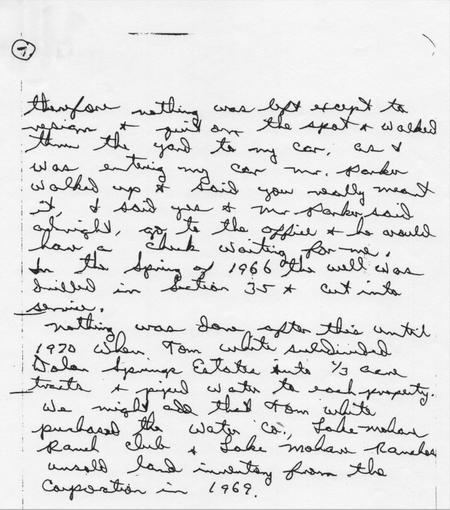 7
therefore nothing was left except to
resign & quit on the spot & walked
thru the yard to my car, as I
was entering my car Mr. Parker
walked up & said you really meant
it, I said yes & Mr. Parker said
alright, go to the office & he would
have a check waiting for me.
In the Spring of 1966 the well was
drilled in Section 35 & cut into
service.
Nothing was done after this until
1970 when Tom White subdivided
Dolan Springs Estates into 1/3 acre
tracts & piped water to each property.
We might add that Tom White
purchased the Water Co., Lake Mohave
Ranch Club & Lake Mohave Ranches
unsold land inventory from the
Corporation in 1969.